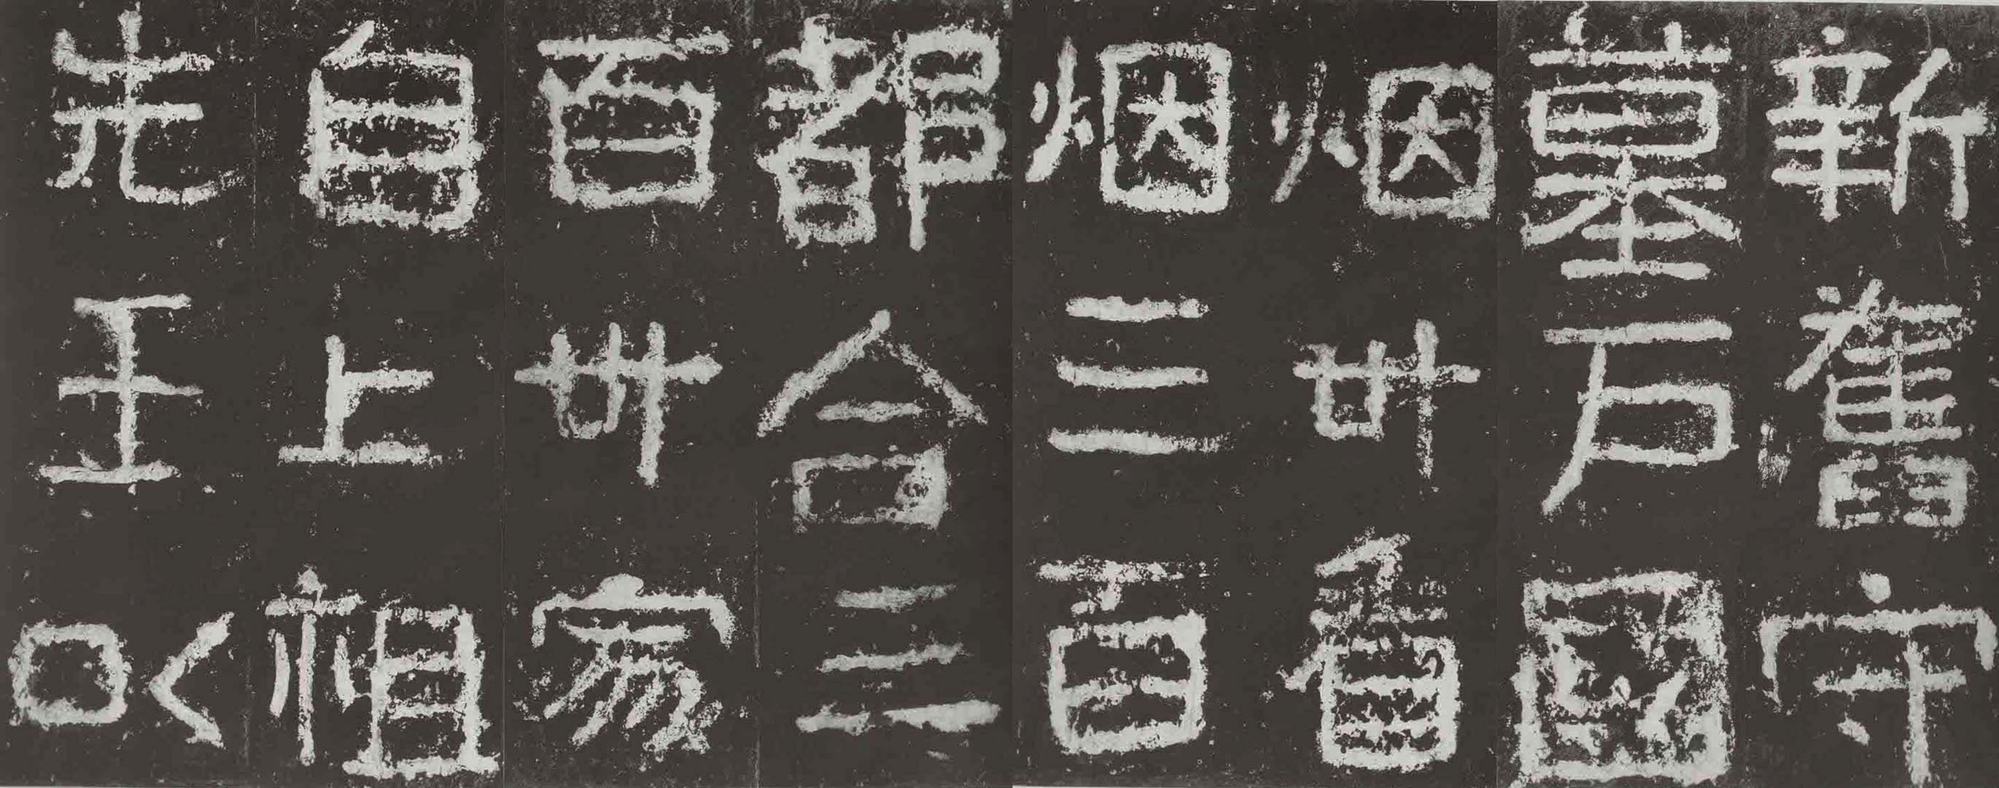 新舊守
墓戶國
烟卅看
烟三百
都合三
百卅家
自上祖
先王以